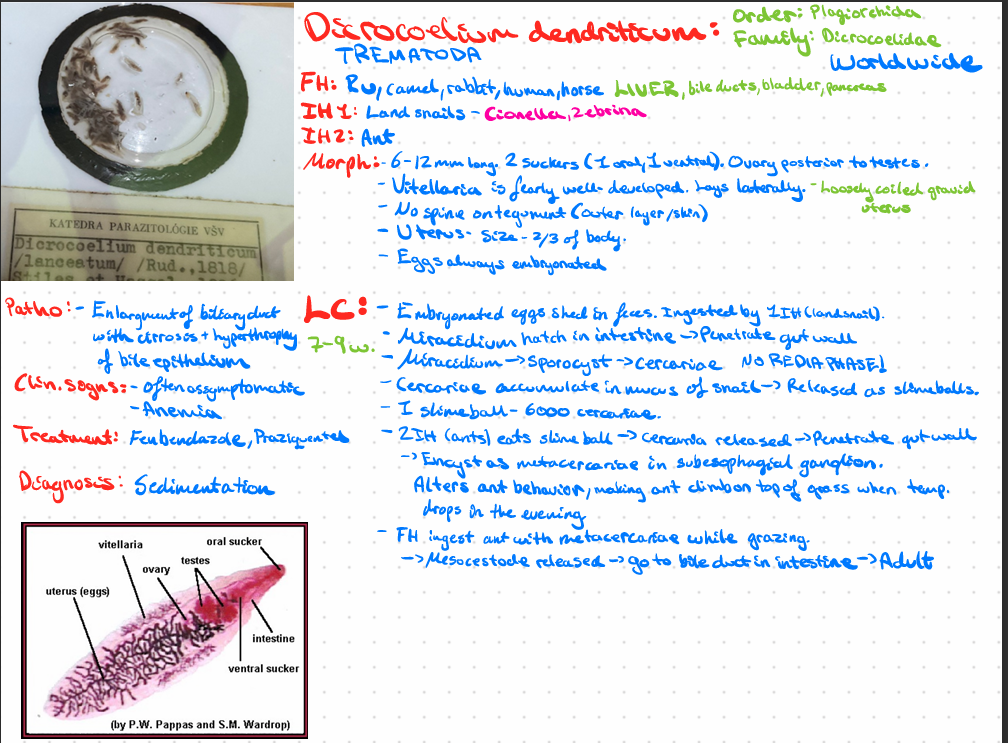 Dicrocoelium dendriticum:
Order: Plagiorchida
Family: Dicrocoelidae
TREMATODA
Worldwide
FH: Ru, camel, rabbit, human, horse LIVER, bile ducts, bladder, pancreas
IH1: Land snails - Cionella, Zebrina
IH2: Ant
Morph: - 6-12 mm long. 2 suckers (1 oral, 1 ventral). Ovary posterior to testes.
- Vitellaria is fearly well-developed. Lays laterally. - Loosely coiled gravid
uterus
- No spine on tegument (outer layer/skin)
- Uterus - Size - 2/3 of body.
- Eggs always embryonated
KATEDRA PARAZITOLÓGIE VŠV
Dicrocoelium dendriticum
/lanceatum/ /Rud.,1818/
Stiles et
Patho: - Enlargment of biliary duct
with cirrosis + hyperthrophy
of bile epithelium
Clin. signs: - often assymptomatic
- Anemia
Treatment: Fenbendazole, Praziquantel
Diagnosis: Sedimentation
LC:
7-9w.
- Embryonated eggs shed in feces. Ingested by 1IH (landsnail).
- Miracidium hatch in intestine → Penetrate gut wall
- Miracidium → Sporocyst → Cercariae NO REDIA PHASE!
- Cercariae accumulate in mucus of snail → Released as slimeballs.
- 1 slimeball - 6000 cercariae.
- 2IH (ants) eats slime ball → cercaria released → Penetrate gut wall
→ Encyst as metacercariae in subesophagial ganglion.
Alters ant behavior, making ant climb on top of grass when temp.
drops in the evening
- FH ingest ant with metacercariae while grazing.
→ Mesocestode released → go to bile duct in intestine → Adult
oral sucker
vitellaria
testes
ovary
uterus (eggs)
intestine
ventral sucker
(by P.W. Pappas and S.M. Wardrop)